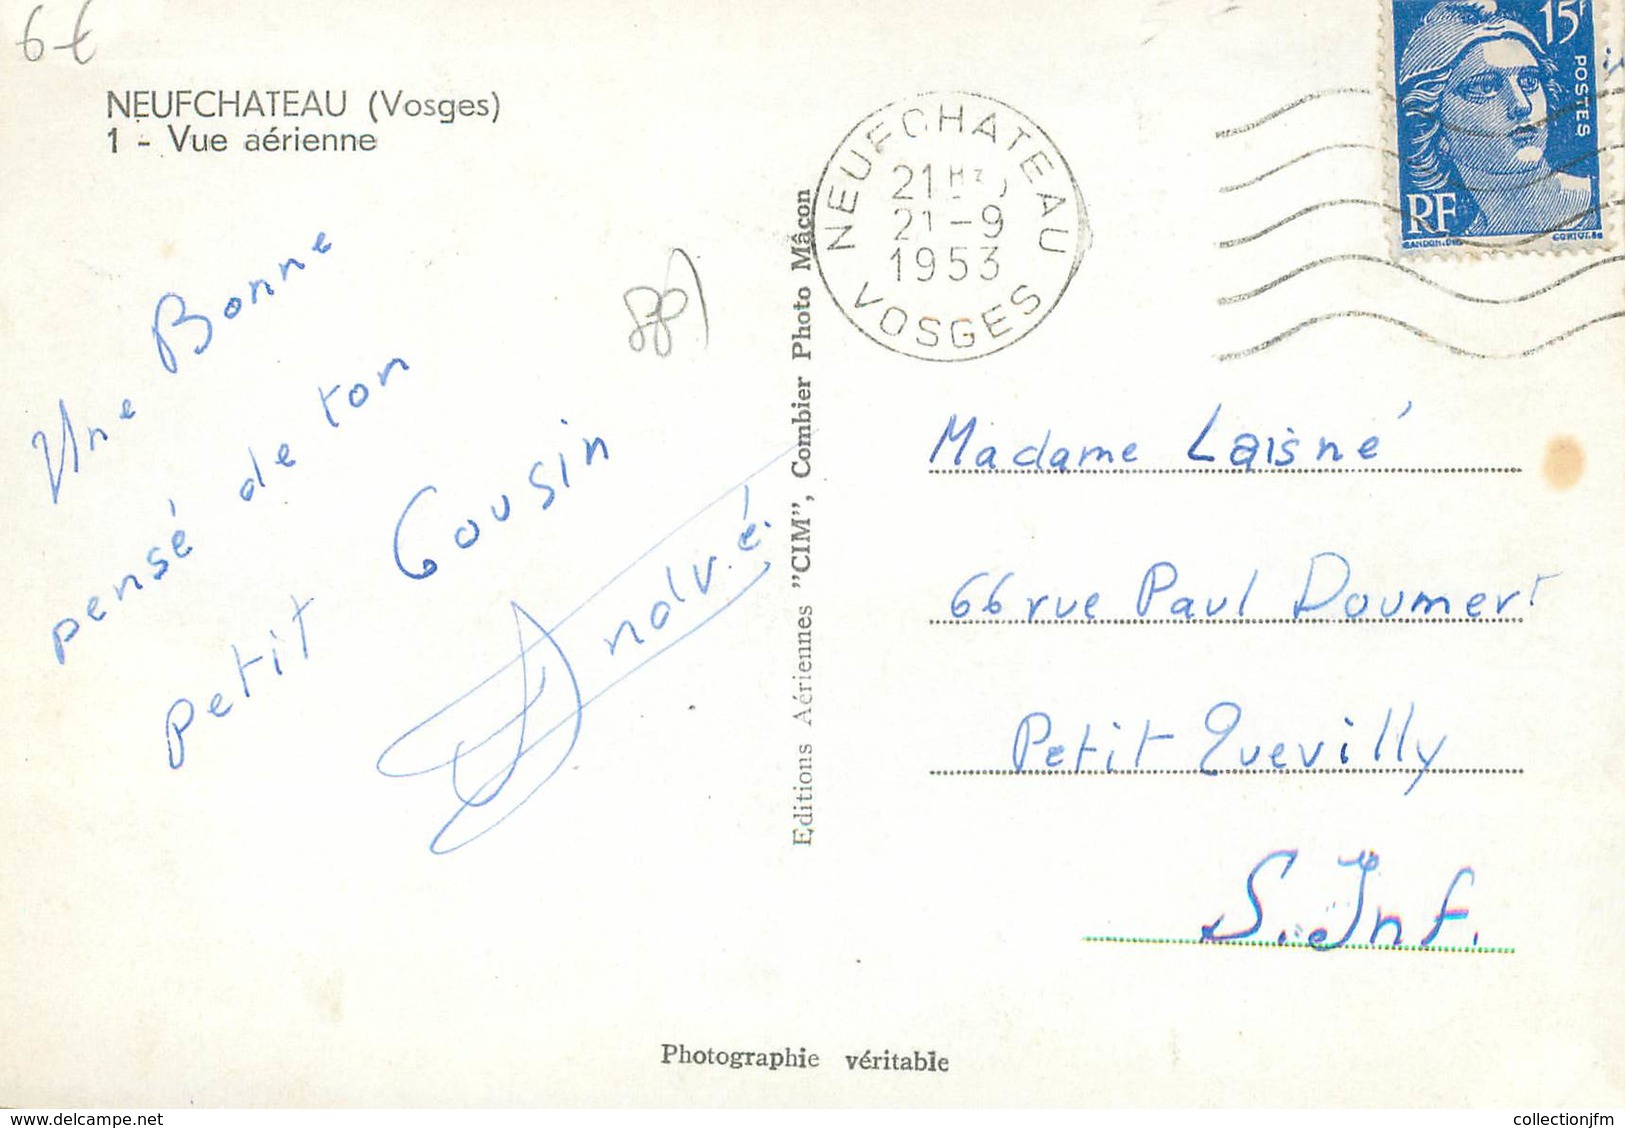 6€
NEUFCHATEAU (Vosges)
1 - Vue aérienne
Une Bonne
pensé de ton
petit Cousin
André
88)
Editions Aériennes "CIM", Combier Photo Mâcon
NEUFCHATEAU
21H
21-9
1953
VOSGES
15F
POSTES
RF
GANDON
CORTOT
Madame Laisné
66 rue Paul Doumert
Petit Quevilly
S. Inf.
Photographie véritable
www.delcampe.net
collectionjfm